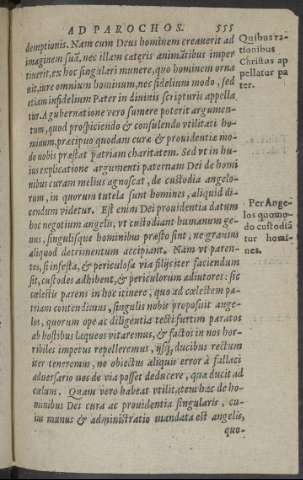 AD PAROCHOS. 555
demptionis. Nam cum Deus hominem creauerit ad
imaginem suã, nec illam cæteris animãtibus imper
tiuerit, ex hoc singulari munere, quo hominem orna
uit, iure omnium hominum, nec fidelium modo, sed
etiam infidelium Pater in diuinis scripturis appella
tur. A gubernatione vero sumere poterit argumen-
tum, quod prospiciendo & consulendo vtilitati ho-
minum, præcipuo quodam curæ & prouidentiæ mo-
do nobis præstat patriam charitatem. Sed vt in hu-
ius explicatione argumenti paternam Dei de homi
nibus curam melius agnoscat, de custodia angelo-
rum, in quorum tutela sunt homines, aliquid di-
cendum videtur. Est enim Dei prouidentia datum
hoc negotium angelis, vt custodiant humanum ge-
nus, singulisque hominibus præsto sint, ne grauius
aliquod detrimentum accipiant. Nam vt paren-
tes, si infesta, & periculosa via filijs iter faciendum
sit, custodes adhibent, & periculorum adiutores: sic
cœlestis parens in hoc itinere, quo ad cœlestem pa-
triam contendimus, singulis nobis preposuit ange-
los, quorum ope ac diligentia tecti furtim paratos
ab hostibus laqueos vitaremus, & factos in nos hor-
ribiles impetus repelleremus, ijsq́; ducibus rectum
iter teneremus, ne obiectus aliquis error à fallaci
aduersario nos de via posset deducere, quæ ducit ad
cælum. Quam vero habeat vtilitatem hæc de ho-
minibus Dei cura ac prouidentia singularis, cu-
ius munus & administratio mandata est angelis,
quo-
Quibus ra-
tionibus
Christus ap
pellatur pa
ter.
Per Ange-
los quomo-
do custodiã
tur homi-
nes.